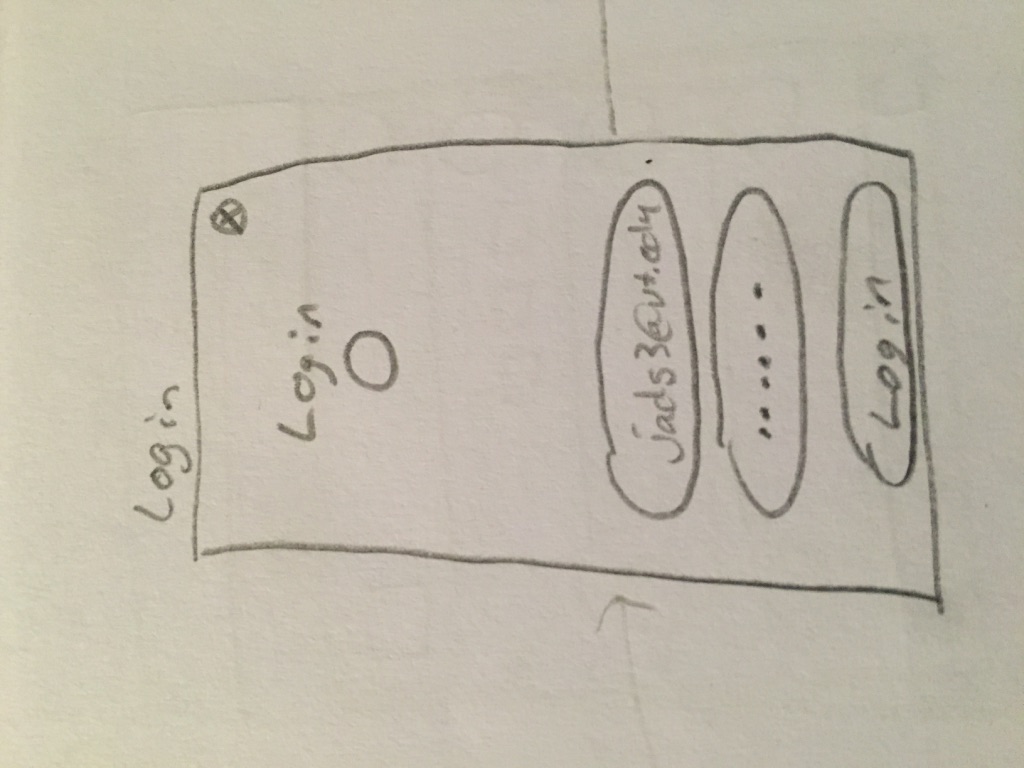 Login
Login
jads3@vt.edu
......
Login